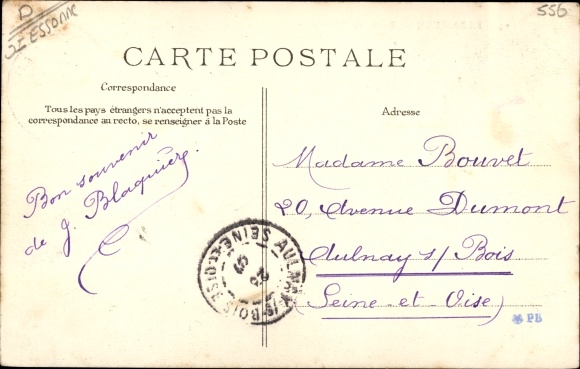 D
91 ESSONNE
556
CARTE POSTALE
Correspondance
Tous les pays étrangers n'acceptent pas la
correspondance au recto, se renseigner à la Poste
Bon souvenir
de J. Blaquière.
Adresse
Madame Bouvet
20, Avenue Dumont
Aulnay s/ Bois
(Seine-et-Oise)
AULNAY-S-BOIS SEINE-ET-OISE
PB